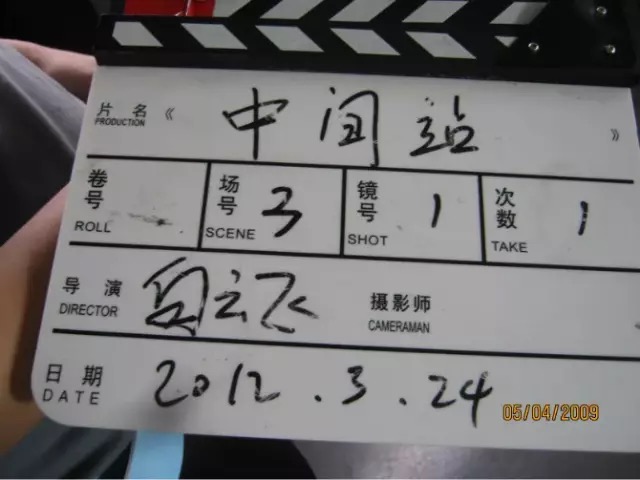 片名《中间站》
PRODUCTION
卷号 场号 3 镜号 1 次数 1
ROLL SCENE SHOT TAKE
导演 白云飞 摄影师
DIRECTOR CAMERAMAN
日期 2012.3.24
DATE
05/04/2009